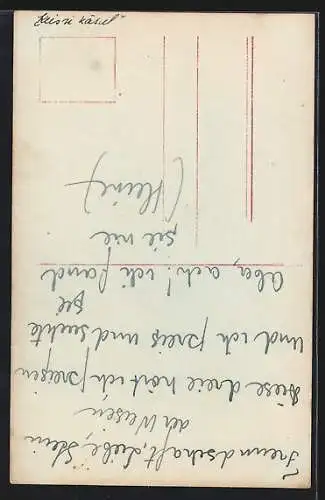 Freundschaft, Liebe, Stein
der Weisen
diese dreie hört ich preisen
Und ich preis und suchte
sie
Aber, ach! ich fand
sie nie
(Heine)